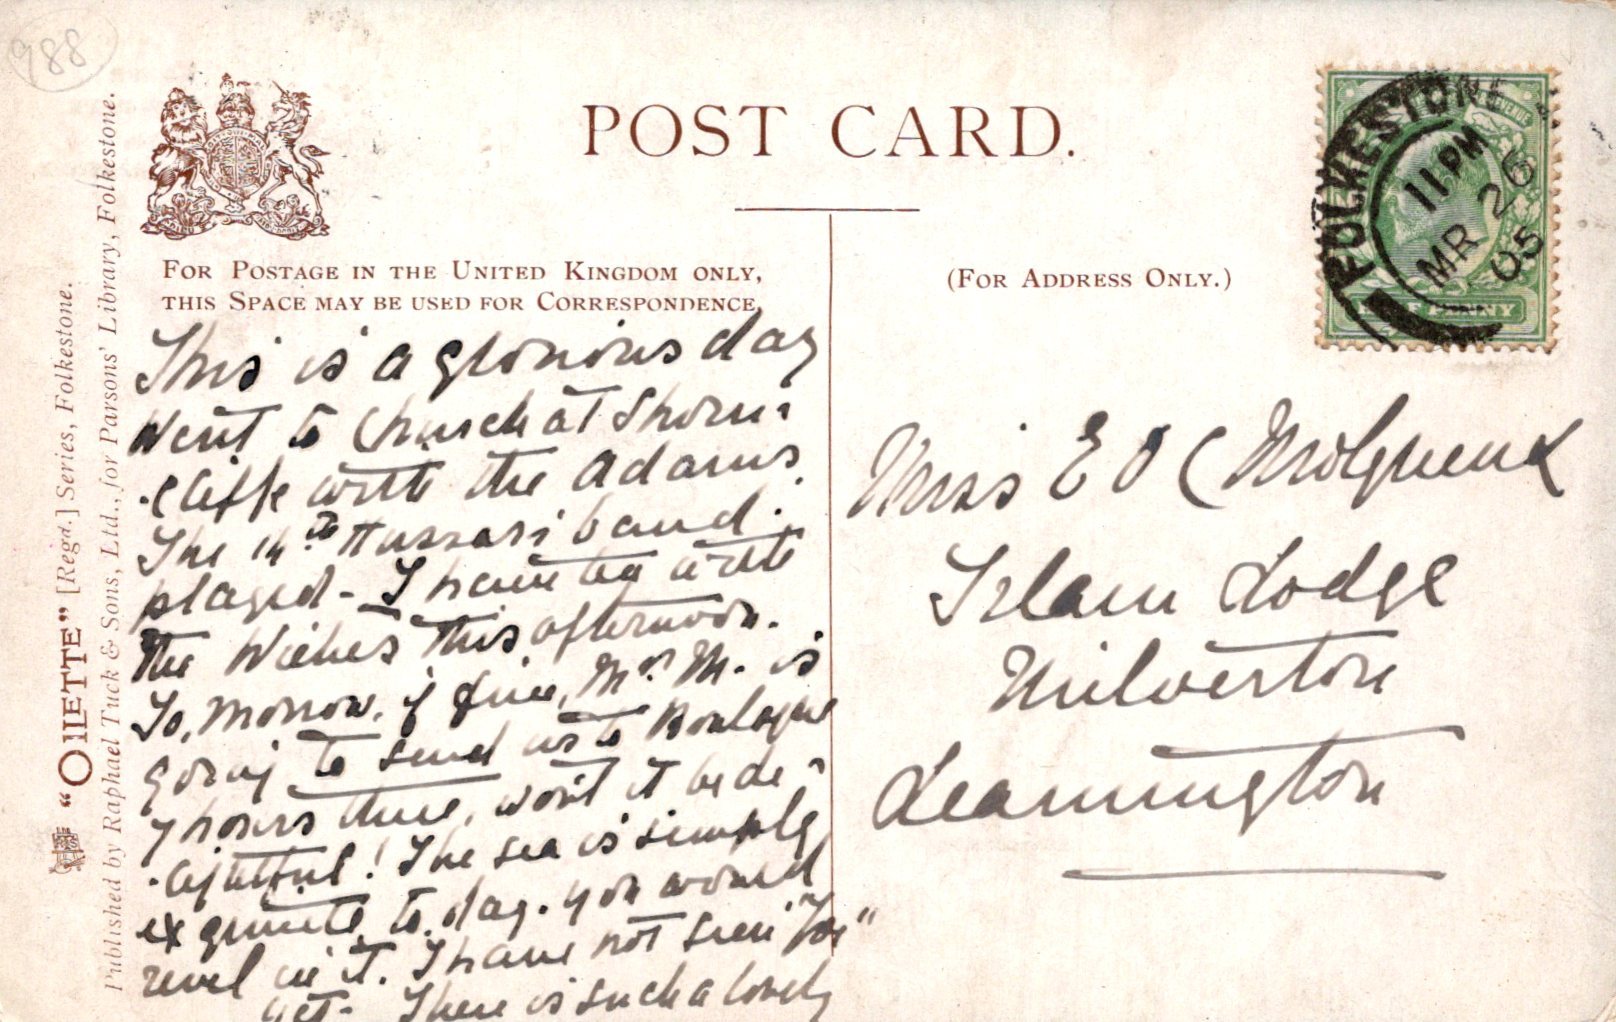 988
POST CARD.
FOR POSTAGE IN THE UNITED KINGDOM ONLY,
THIS SPACE MAY BE USED FOR CORRESPONDENCE,
(FOR ADDRESS ONLY.)
"OILETTE" [Regd.] Series, Folkestone.
Published by Raphael Tuck & Sons, Ltd., for Parsons' Library, Folkestone.
FOLKESTONE
11 PM
MR 26
05
This is a glorious day
Went to Church at Shorn-
-cliffe with the Adams.
The 14th Hussars band
played - I have to write
the Wickes this afternoon.
To,morrow, if fine, Mrs M. is
going to send us to Boulogne
7 hours there, won't it be de-
-lightful! The sea is simply
exquisite to,day. You would
revel in it. I have not seen
yet. There is such a lovely
Miss E O C
Lodge
Milverton
Leamington